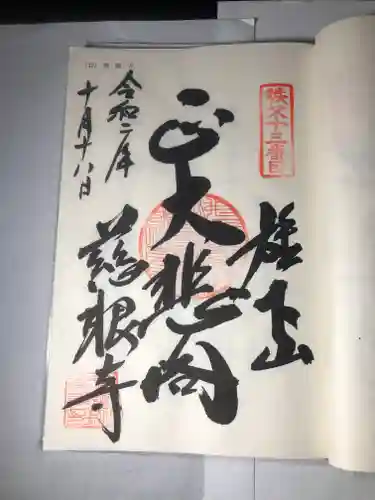 秩父十三番
旗下山
大悲閣
慈眼寺
令和二年
十月十八日